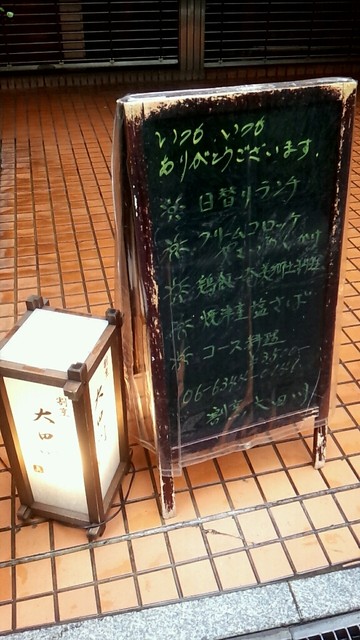 いつも、いつも
ありがとうございます。
※ 日替りランチ
※ クリームコロッケ
※ 鶏飯 奄美郷土料理
※ 焼津 塩さば
※ コース料理
3500
06-6344
割烹 大田川
割烹
大田